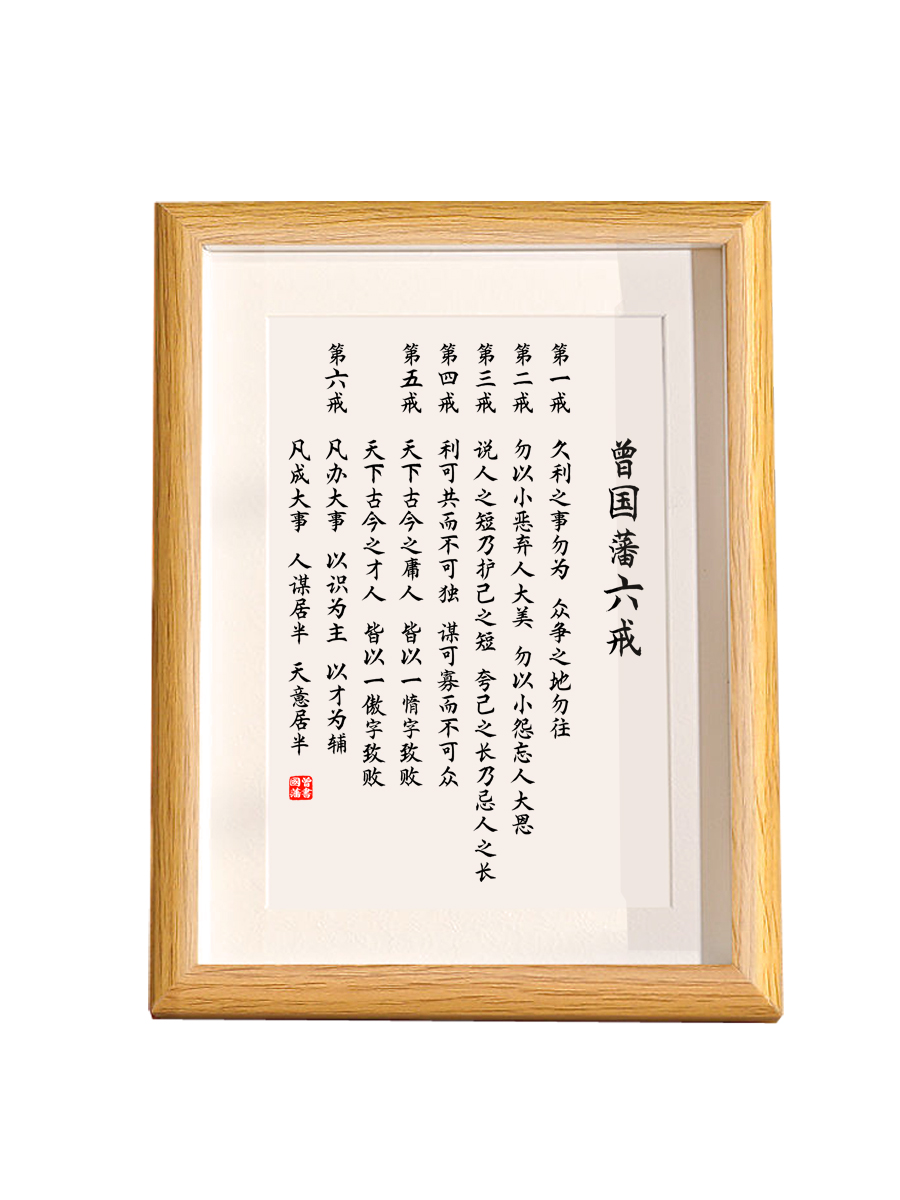 曾国藩六戒
第一戒 久利之事勿为 众争之地勿往
第二戒 勿以小恶弃人大美 勿以小怨忘人大恩
第三戒 说人之短乃护己之短 夸己之长乃忌人之长
第四戒 利可共而不可独 谋可寡而不可众
第五戒 天下古今之庸人 皆以一惰字致败
天下古今之才人 皆以一傲字致败
第六戒 凡办大事 以识为主 以才为辅
凡成大事 人谋居半 天意居半
曾書
國藩